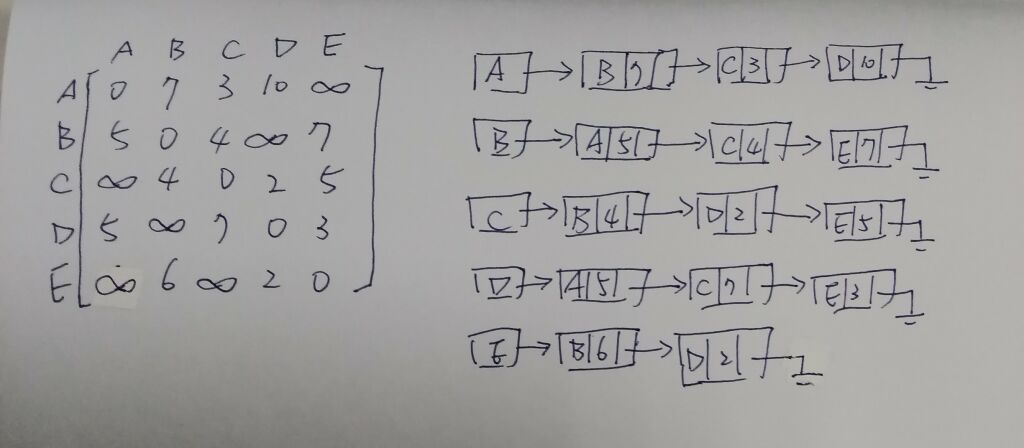 A B C D E
A 0 7 3 10 ∞
B 5 0 4 ∞ 7
C ∞ 4 0 2 5
D 5 ∞ 7 0 3
E ∞ 6 ∞ 2 0
A → B 7 → C 3 → D 10
B → A 5 → C 4 → E 7
C → B 4 → D 2 → E 5
D → A 5 → C 7 → E 3
E → B 6 → D 2